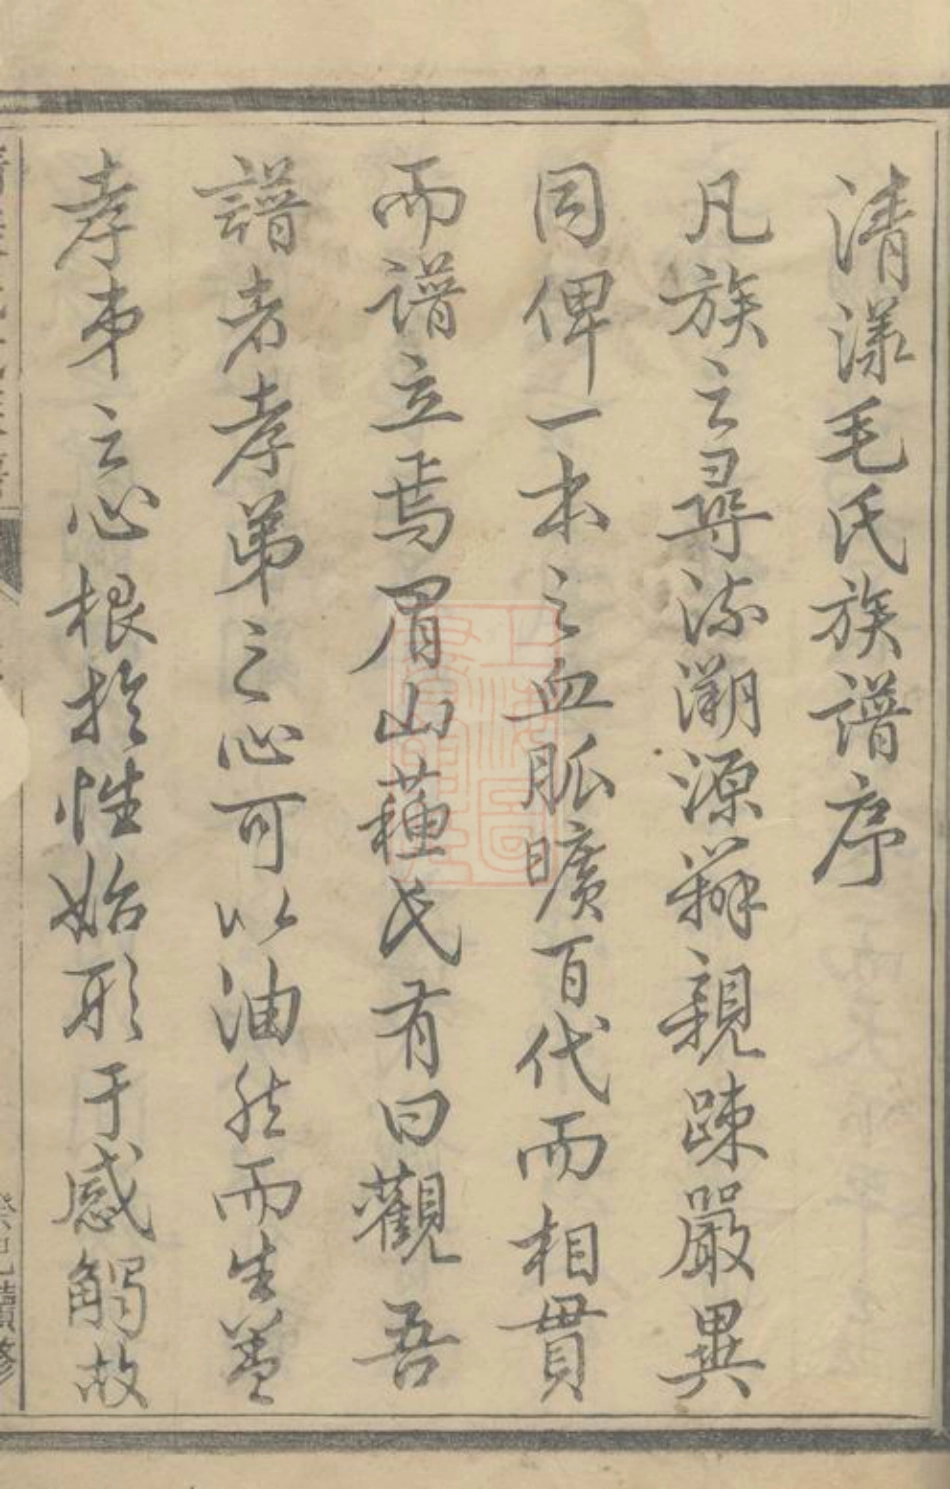 清漾毛氏族譜序
凡族之尋流溯源辨親疎嚴異
同俾一本之血脈曠百代而相貫
而譜立焉眉山蘓氏有曰觀吾
譜者孝弟之心可以油然而生蓋
孝弟之心根於性始形于感觸故
癸巳續修